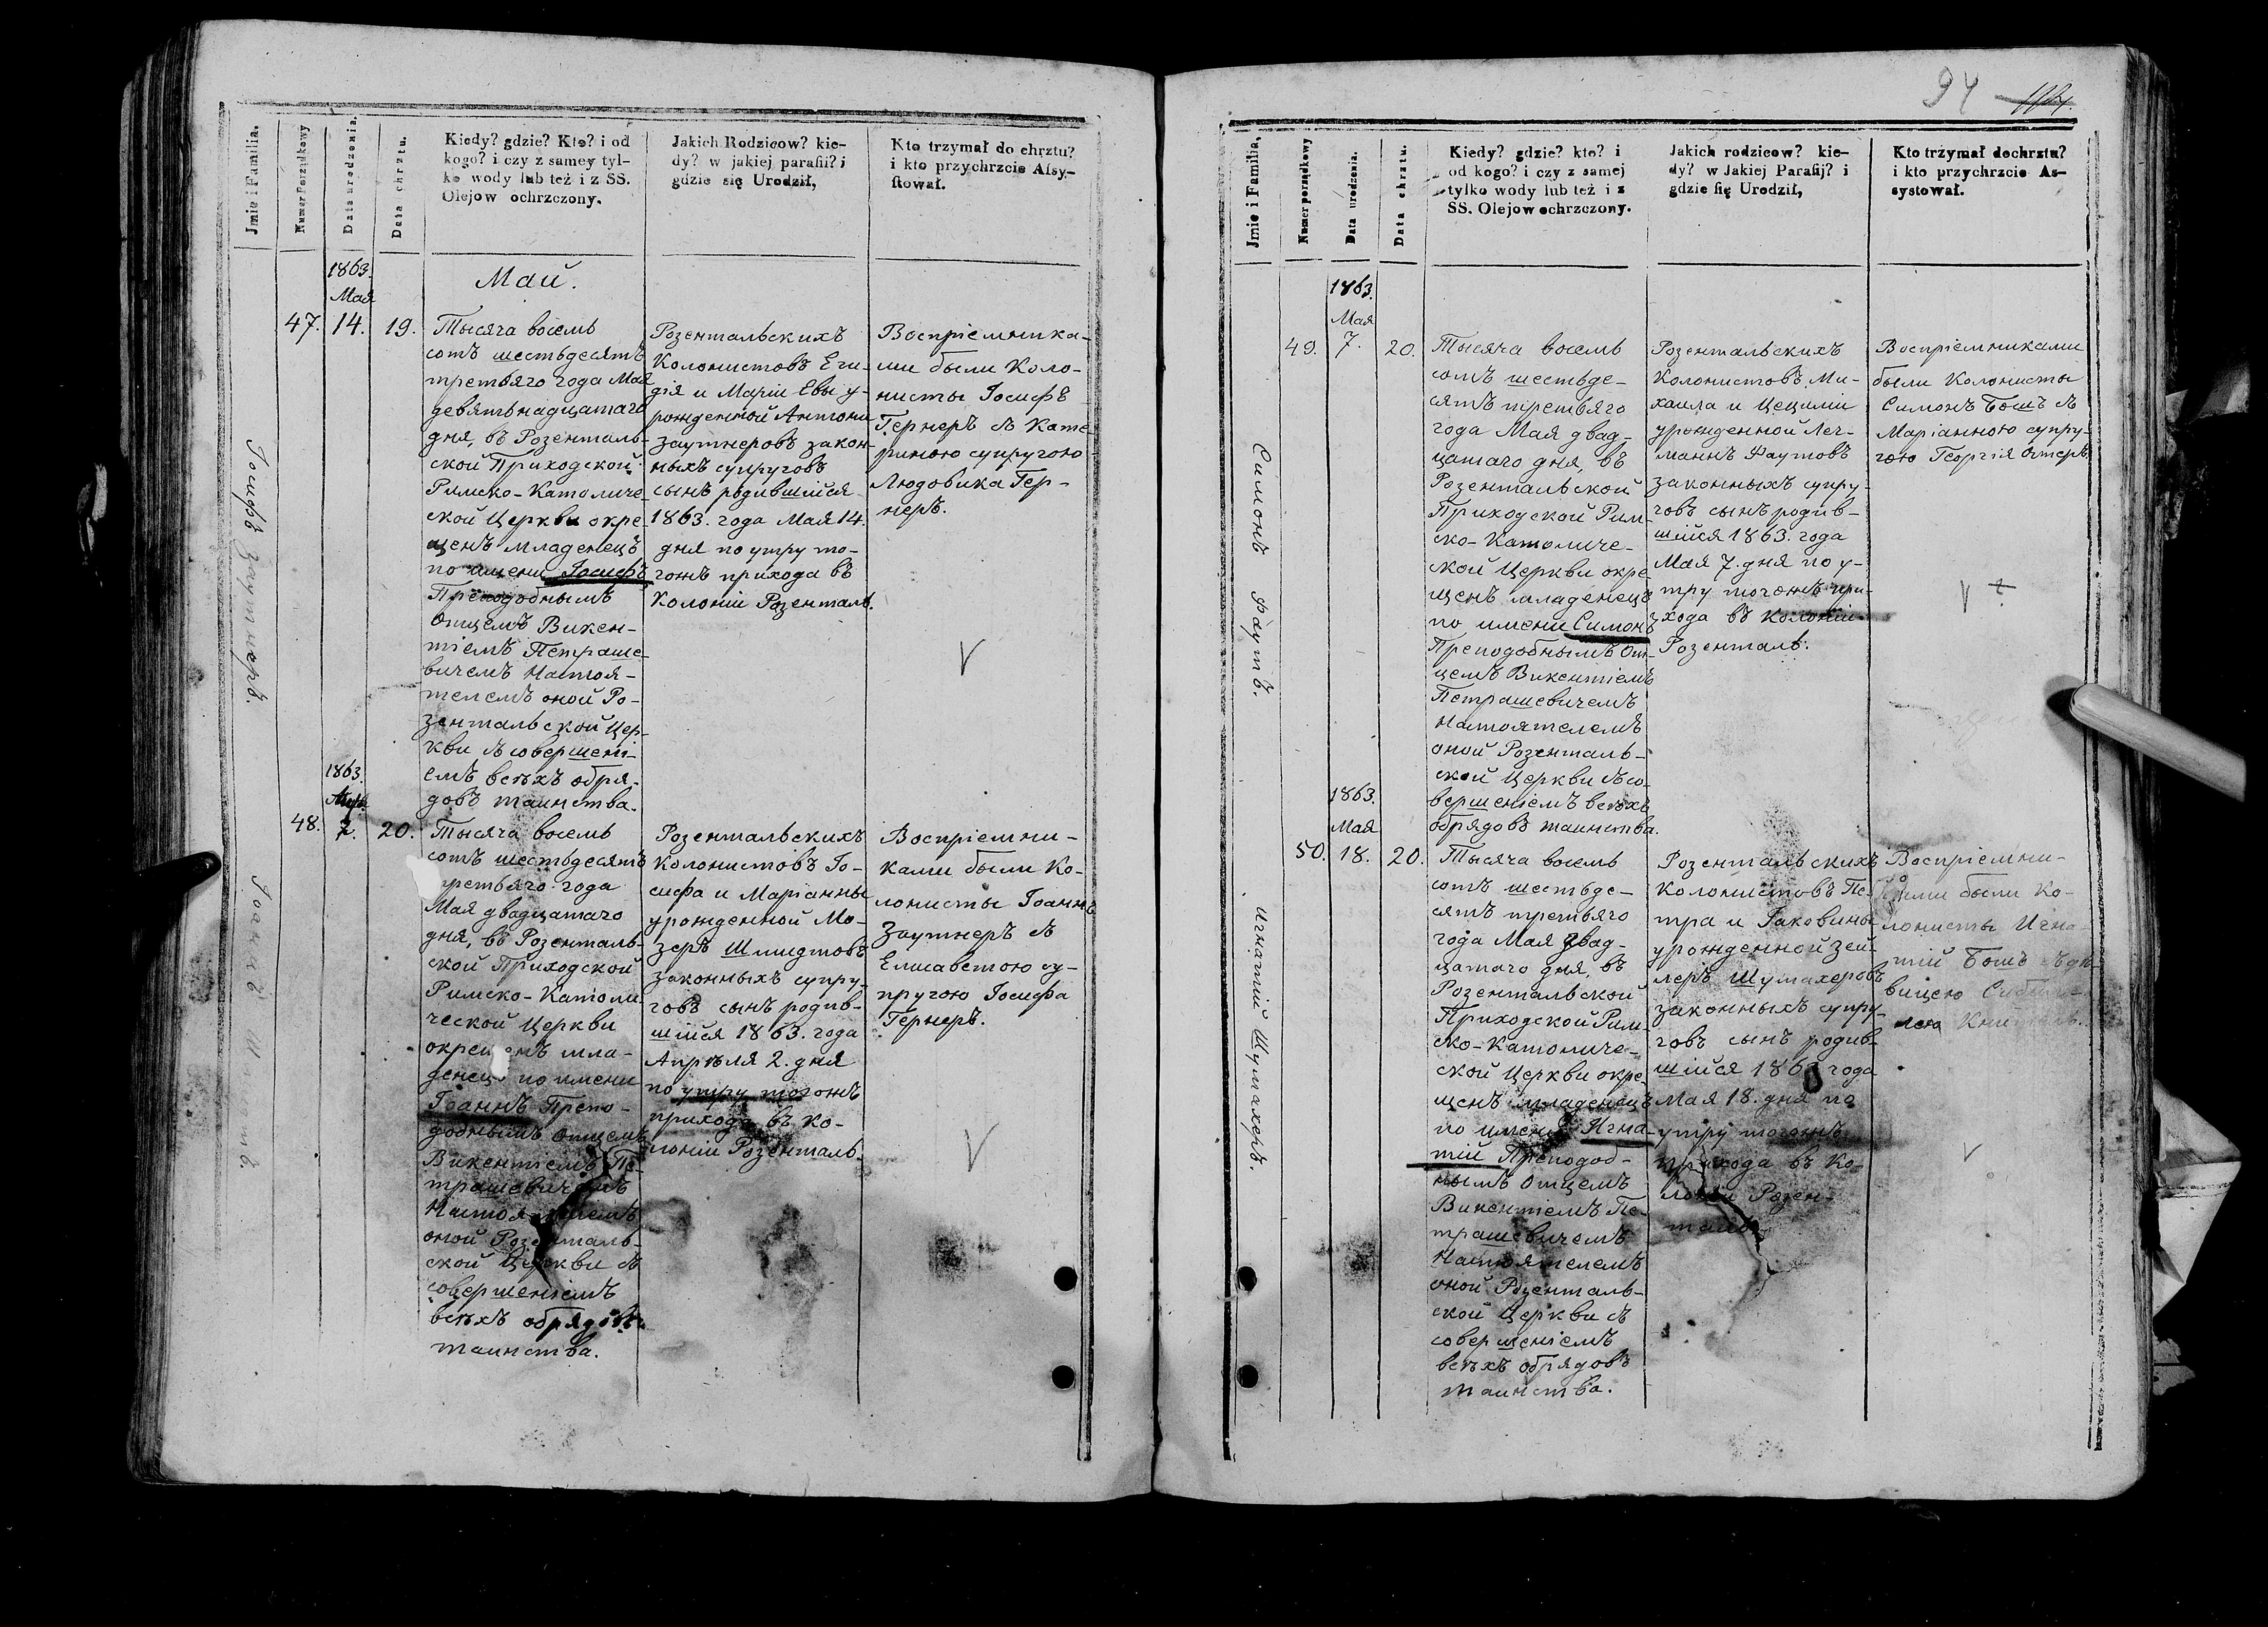 Jmie i Familia.
Numer Porządkowy
Data urodzenia.
Data chrztu.
Kiedy? gdzie? Kto? i od
kogo? i czy z samey tyl-
ko wody lub też i z SS.
Olejow ochrzczony.
Jakich Rodzicow? kie-
dy? w jakiej parafii? i
gdzie się Urodził,
Kto trzymał do chrztu?
i kto przychrzcie Afsy-
ftował.
1863.
Мая
Май.
Іосифъ Заутнеръ.
47.
14.
19.
Тысяча восемь
сотъ шестьдесятъ
третьяго года Мая
девятьнадцатаго
дня, въ Розенталь-
ской Приходской
Римско-Католиче-
ской Церкви окре-
щенъ младенецъ
по имени Іосифъ
Преподобнымъ
Отцемъ Викен-
тіемъ Петраше-
вичемъ Настоя-
телемъ оной Ро-
зентальской Цер-
кви съ совершені-
емъ всѣхъ обря-
довъ таинства.
Розентальскихъ
Колонистовъ Еги-
дія и Маріи Евы у-
рожденной Антони
Заутнеровъ закон-
ныхъ супруговъ
сынъ родившійся
1863. года Мая 14.
дня по утру то-
гожъ прихода въ
Колоніи Розенталь.
Воспріемника-
ми были Коло-
нисты Іосифъ
Гернеръ съ Кате-
риною супругою
Людовика Гер-
неръ.
V
1863.
Апр.
Іоаннъ
48.
2.
20.
Тысяча восемь
сотъ шестьдесятъ
третьяго года
Мая двадцатаго
дня, въ Розенталь-
ской Приходской
Римско-Католи-
ческой Церкви
окрещенъ мла-
денецъ по имени
Іоаннъ Препо-
добнымъ Отцемъ
Викентіемъ Пе-
трашевичемъ
Настоятелемъ
оной Розенталь-
ской Церкви съ
совершеніемъ
всѣхъ обрядовъ
таинства.
Розентальскихъ
Колонистовъ Іо-
сифа и Маріанны
урожденной Мо-
зеръ Шмидтовъ
законныхъ супру-
говъ сынъ родив-
шійся 1863. года
Апрѣля 2. дня
по утру тогожъ
прихода въ Ко-
лоніи Розенталь.
Воспріемни-
ками были Ко-
лонисты Іоаннъ
Заутнеръ съ
Елисаветою су-
пругою Іосифа
Гернеръ.
V
94
Jmie i Familia,
Numer porządkowy
Data urodzenia.
Data chrztu.
Kiedy? gdzie? kto? i
od kogo? i czy z samej
tylko wody lub też i z
SS. Olejow ochrzczony.
Jakich rodzicow? kie-
dy? w Jakiej Parafij? i
gdzie fię Urodził,
Kto trzymał dochrztu?
i kto przychrzcie As-
systował.
1863.
Мая
Симонъ Фаутъ.
49.
7.
20.
Тысяча восемь
сотъ шестьде-
сятъ третьяго
года Мая двад-
цатаго дня, въ
Розентальской
Приходской Рим-
ско-Католиче-
ской Церкви окре-
щенъ младенецъ
по имени Симонъ
Преподобнымъ От-
цемъ Викентіемъ
Петрашевичемъ
Настоятелемъ
оной Розенталь-
ской Церкви съ со-
вершеніемъ всѣхъ
обрядовъ таинства.
Розентальскихъ
Колонистовъ Ми-
хаила и Цециліи
урожденной Лег-
маннъ Фаутовъ
законныхъ супру-
говъ сынъ родив-
шійся 1863. года
Мая 7. дня по у-
тру тогожъ при-
хода въ Колоніи
Розенталь.
Воспріемниками
были Колонисты
Симонъ Бошъ съ
Маріанною супру-
гою Георгія
V
1863.
Мая
Игнатій Шумахеръ.
50.
18.
20.
Тысяча восемь
сотъ шестьде-
сятъ третьяго
года Мая двад-
цатаго дня, въ
Розентальской
Приходской Рим-
ско-Католиче-
ской Церкви окре-
щенъ младенецъ
по имени Игна-
тій Преподоб-
нымъ Отцемъ
Викентіемъ Пе-
трашевичемъ
Настоятелемъ
оной Розенталь-
ской Церкви съ
совершеніемъ
всѣхъ обрядовъ
таинства.
Розентальскихъ
Колонистовъ Пе-
тра и Іаковины
урожденной Зей-
леръ Шумахеровъ
законныхъ супру-
говъ сынъ родив-
шійся 1863 года
Мая 18. дня по
утру тогожъ
прихода въ Ко-
лоніи Розен-
таль.
Воспріемни-
ками были Ко-
лонисты Игна-
тій Бошъ съ дѣ-
вицею